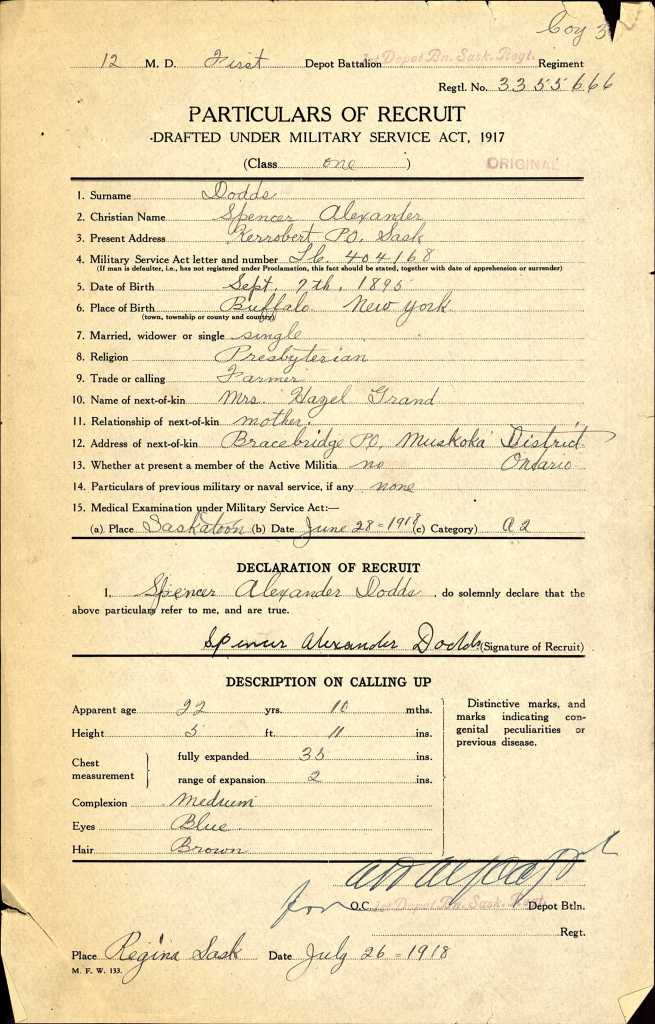 Coy 3
12 M. D. First Depot Battalion 1st Depot Bn. Sask. Regt. Regiment
Regtl. No. 3355666
PARTICULARS OF RECRUIT
DRAFTED UNDER MILITARY SERVICE ACT, 1917
(Class one)
ORIGINAL
1. Surname Dodds
2. Christian Name Spencer Alexander
3. Present Address Kerrobert PO. Sask
4. Military Service Act letter and number 404168
(If man is defaulter, i.e., has not registered under Proclamation, this fact should be stated, together with date of apprehension or surrender)
5. Date of Birth Sept. 7th, 1895
6. Place of Birth Buffalo New York
(town, township or county and country)
7. Married, widower or single single
8. Religion Presbyterian
9. Trade or calling Farmer
10. Name of next-of-kin Mrs. Hazel Grand
11. Relationship of next-of-kin mother.
12. Address of next-of-kin Bracebridge PO, Muskoka District
13. Whether at present a member of the Active Militia no Ontario
14. Particulars of previous military or naval service, if any none
15. Medical Examination under Military Service Act:—
(a) Place Saskatoon (b) Date June 28-1918 (c) Category) A2
DECLARATION OF RECRUIT
I, Spencer Alexander Dodds, do solemnly declare that the
above particulars refer to me, and are true.
Spencer Alexander Dodds (Signature of Recruit)
DESCRIPTION ON CALLING UP
Apparent age 22 yrs. 10 mths.
Height 5 ft. 11 ins.
Chest measurement
fully expanded 35 ins.
range of expansion 2 ins.
Complexion Medium
Eyes Blue
Hair Brown
Distinctive marks, and
marks indicating con-
genital peculiarities or
previous disease.
for O.C. 1st Depot Bn. Sask. Regt. Depot Btln.
Regt.
Place Regina Sask Date July 26-1918
M. F. W. 133.